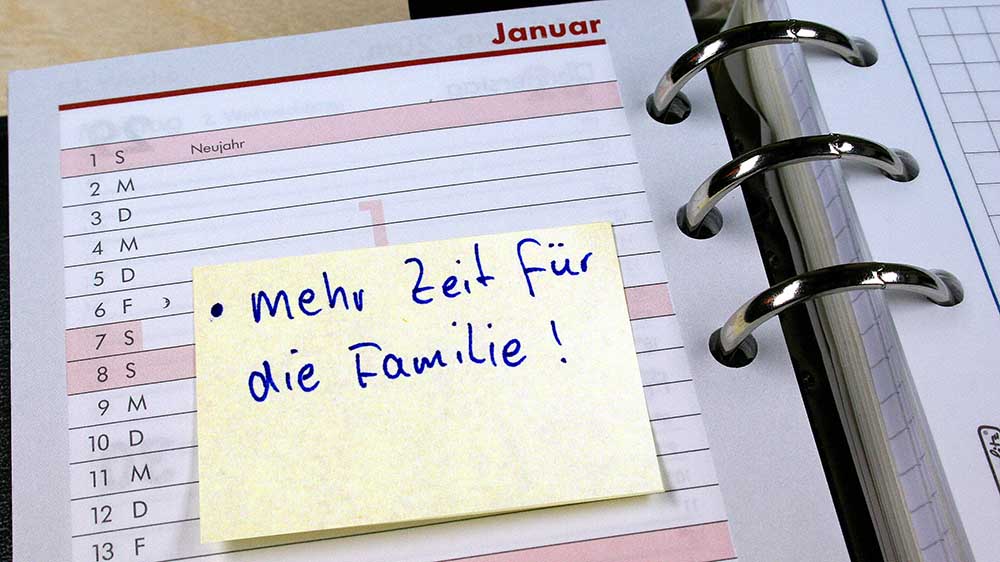 Januar
1 S Neujahr
2 M
3 D
4 M
5 D
6 F
7 S
8 S
9 M
10 D
11 M
12 D
13 F
1
• mehr Zeit für
die Familie!